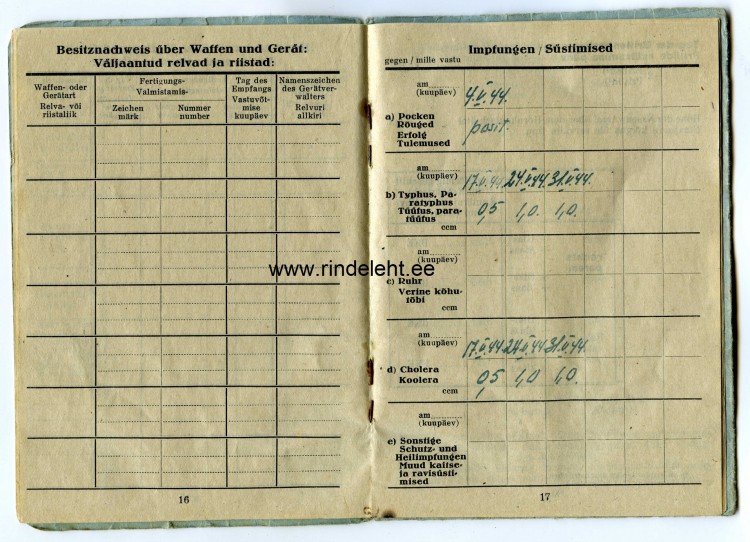 Besitznachweis über Waffen und Gerät:
Väljaantud relvad ja riistad:
Waffen- oder
Gerätart
Relva- või
riistaliik
Fertigungs-
Valmistamis-
Zeichen
märk
Nummer
number
Tag des
Empfangs
Vastuvõt-
mise
kuupäev
Namenszeichen
des Gerätver-
walters
Relvuri
allkiri
16
Impfungen / Süstimised
gegen / mille vastu
am
(kuupäev)
4.V.44.
a) Pocken
Rõuged
Erfolg
Tulemused
posit.
am
(kuupäev)
17.V.44 24.V.44. 31.V.44.
b) Typhus, Pa-
ratyphus
Tüüfus, para-
tüüfus
ccm
0,5 1,0. 1,0.
am
(kuupäev)
c) Ruhr
Verine kõhu-
tõbi
ccm
am
(kuupäev)
17.V.44 24.V.44 31.V.44.
d) Cholera
Koolera
ccm
0,5 1,0 1,0.
am
(kuupäev)
e) Sonstige
Schutz- und
Heilimpfungen
Muud kaitse-
ja ravisüsti-
mised
17
www.rindeleht.ee